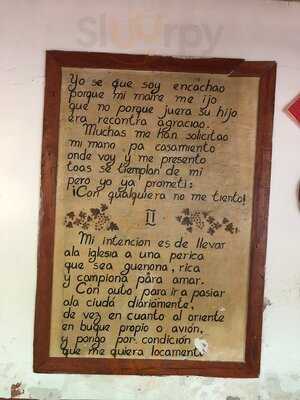 Sluurpy
Yo se que soy encachao
porque mi maire me ijo
que no porque juera su hijo
era recontra agraciao.
Muchas me han solicitao
mi mano pa casamiento
onde voy y me presento
toas se tiemplan de mi
pero yo ya prometi:
¡Con cualquiera no me tiento!
II
Mi intencion es de llevar
ala iglesia a una perica
que sea guenona, rica
y campiona para amar.
Con auto para ir a pasiar
ala ciuda diariamente,
de vez en cuanto al oriente
en buque propio o avión,
y pongo por condición
que me quiera locamente